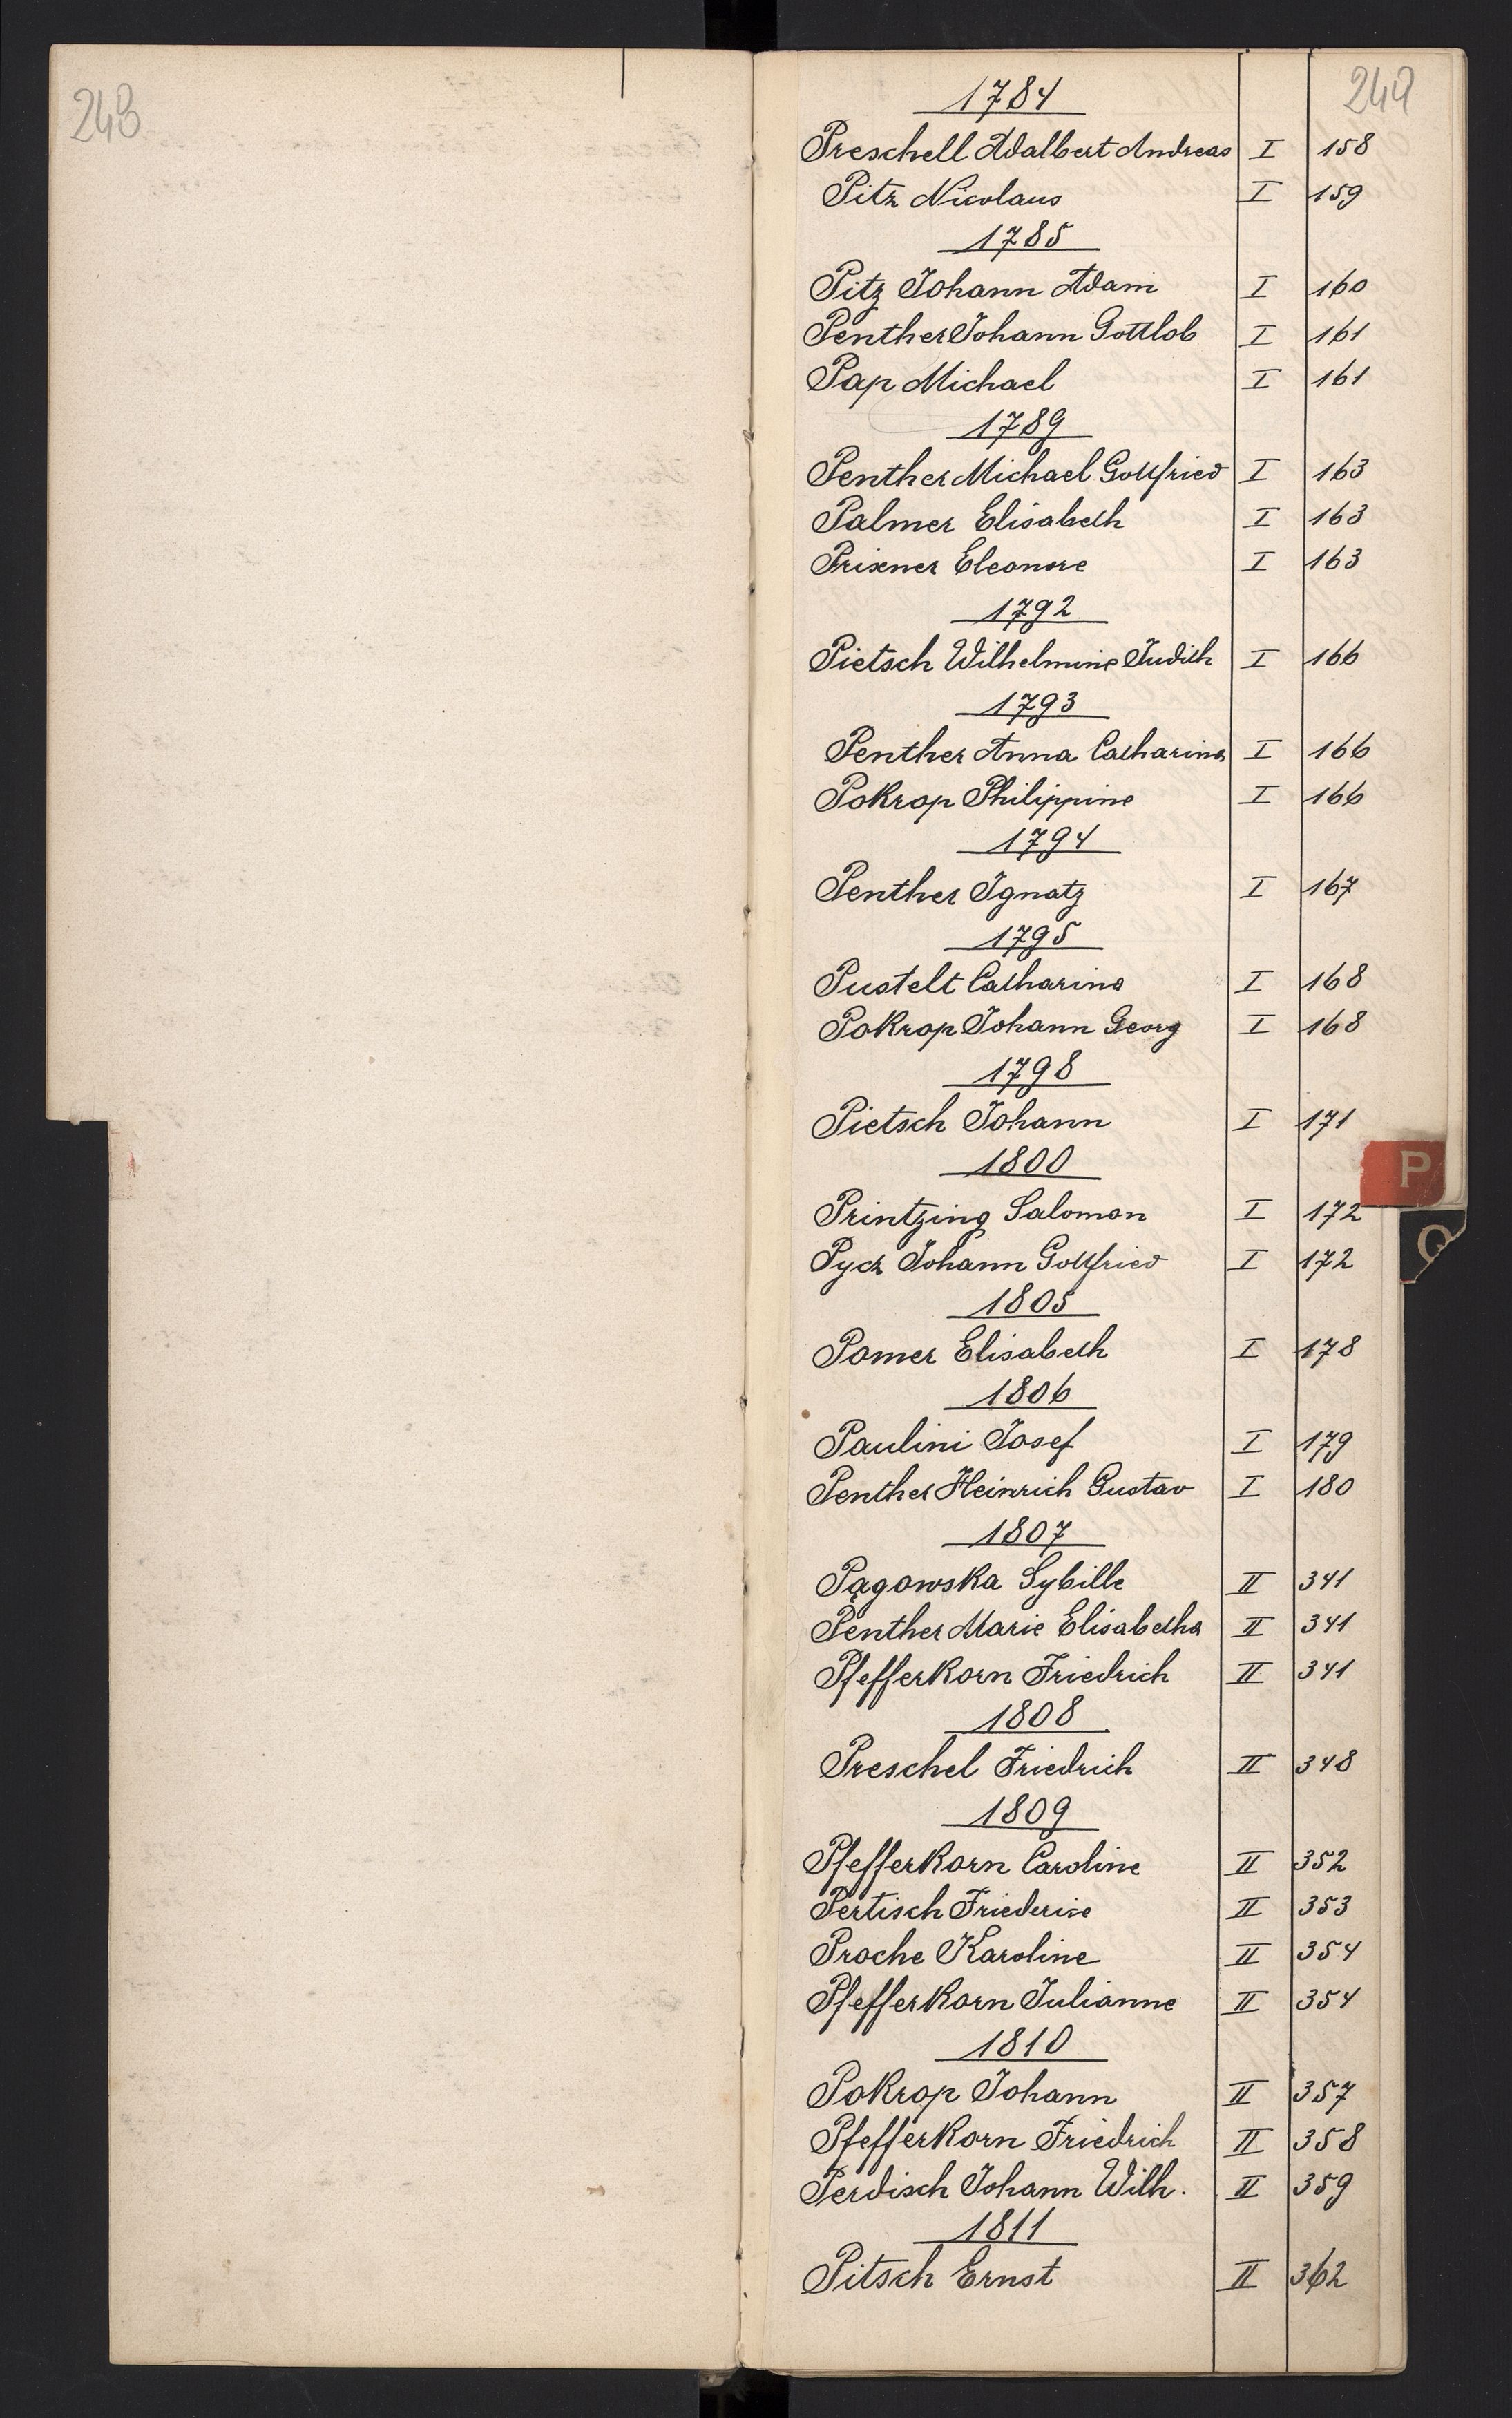 248
249
1784
Preschell Adalbert Andreas I 158
Pitz Nicolaus I 159
1785
Pitz Johann Adam I 160
Penther Johann Gottlob I 161
Pap Michael I 161
1789
Penther Michael Gottfried I 163
Palmer Elisabeth I 163
Prixner Eleonore I 163
1792
Pietsch Wilhelmine Judith I 166
1793
Penther Anna Catharina I 166
Pokrop Philippine I 166
1794
Penther Ignatz I 167
1795
Pustelt Catharina I 168
Pokrop Johann Georg I 168
1798
Pietsch Johann I 171
P
1800
Printzing Salomon I 172
Q
Pycz Johann Gottfried I 172
1805
Pomer Elisabeth I 178
1806
Paulini Josef I 179
Penther Heinrich Gustav I 180
1807
Pągowska Sybille II 341
Penther Marie Elisabetha II 341
Pfefferkorn Friedrich II 341
1808
Preschel Friedrich II 348
1809
Pfefferkorn Caroline II 352
Pertisch Friederike II 353
Proche Karoline II 354
Pfefferkorn Julianne II 354
1810
Pokrop Johann II 357
Pfefferkorn Friedrich II 358
Perdisch Johann Wilh. II 359
1811
Pitsch Ernst II 362